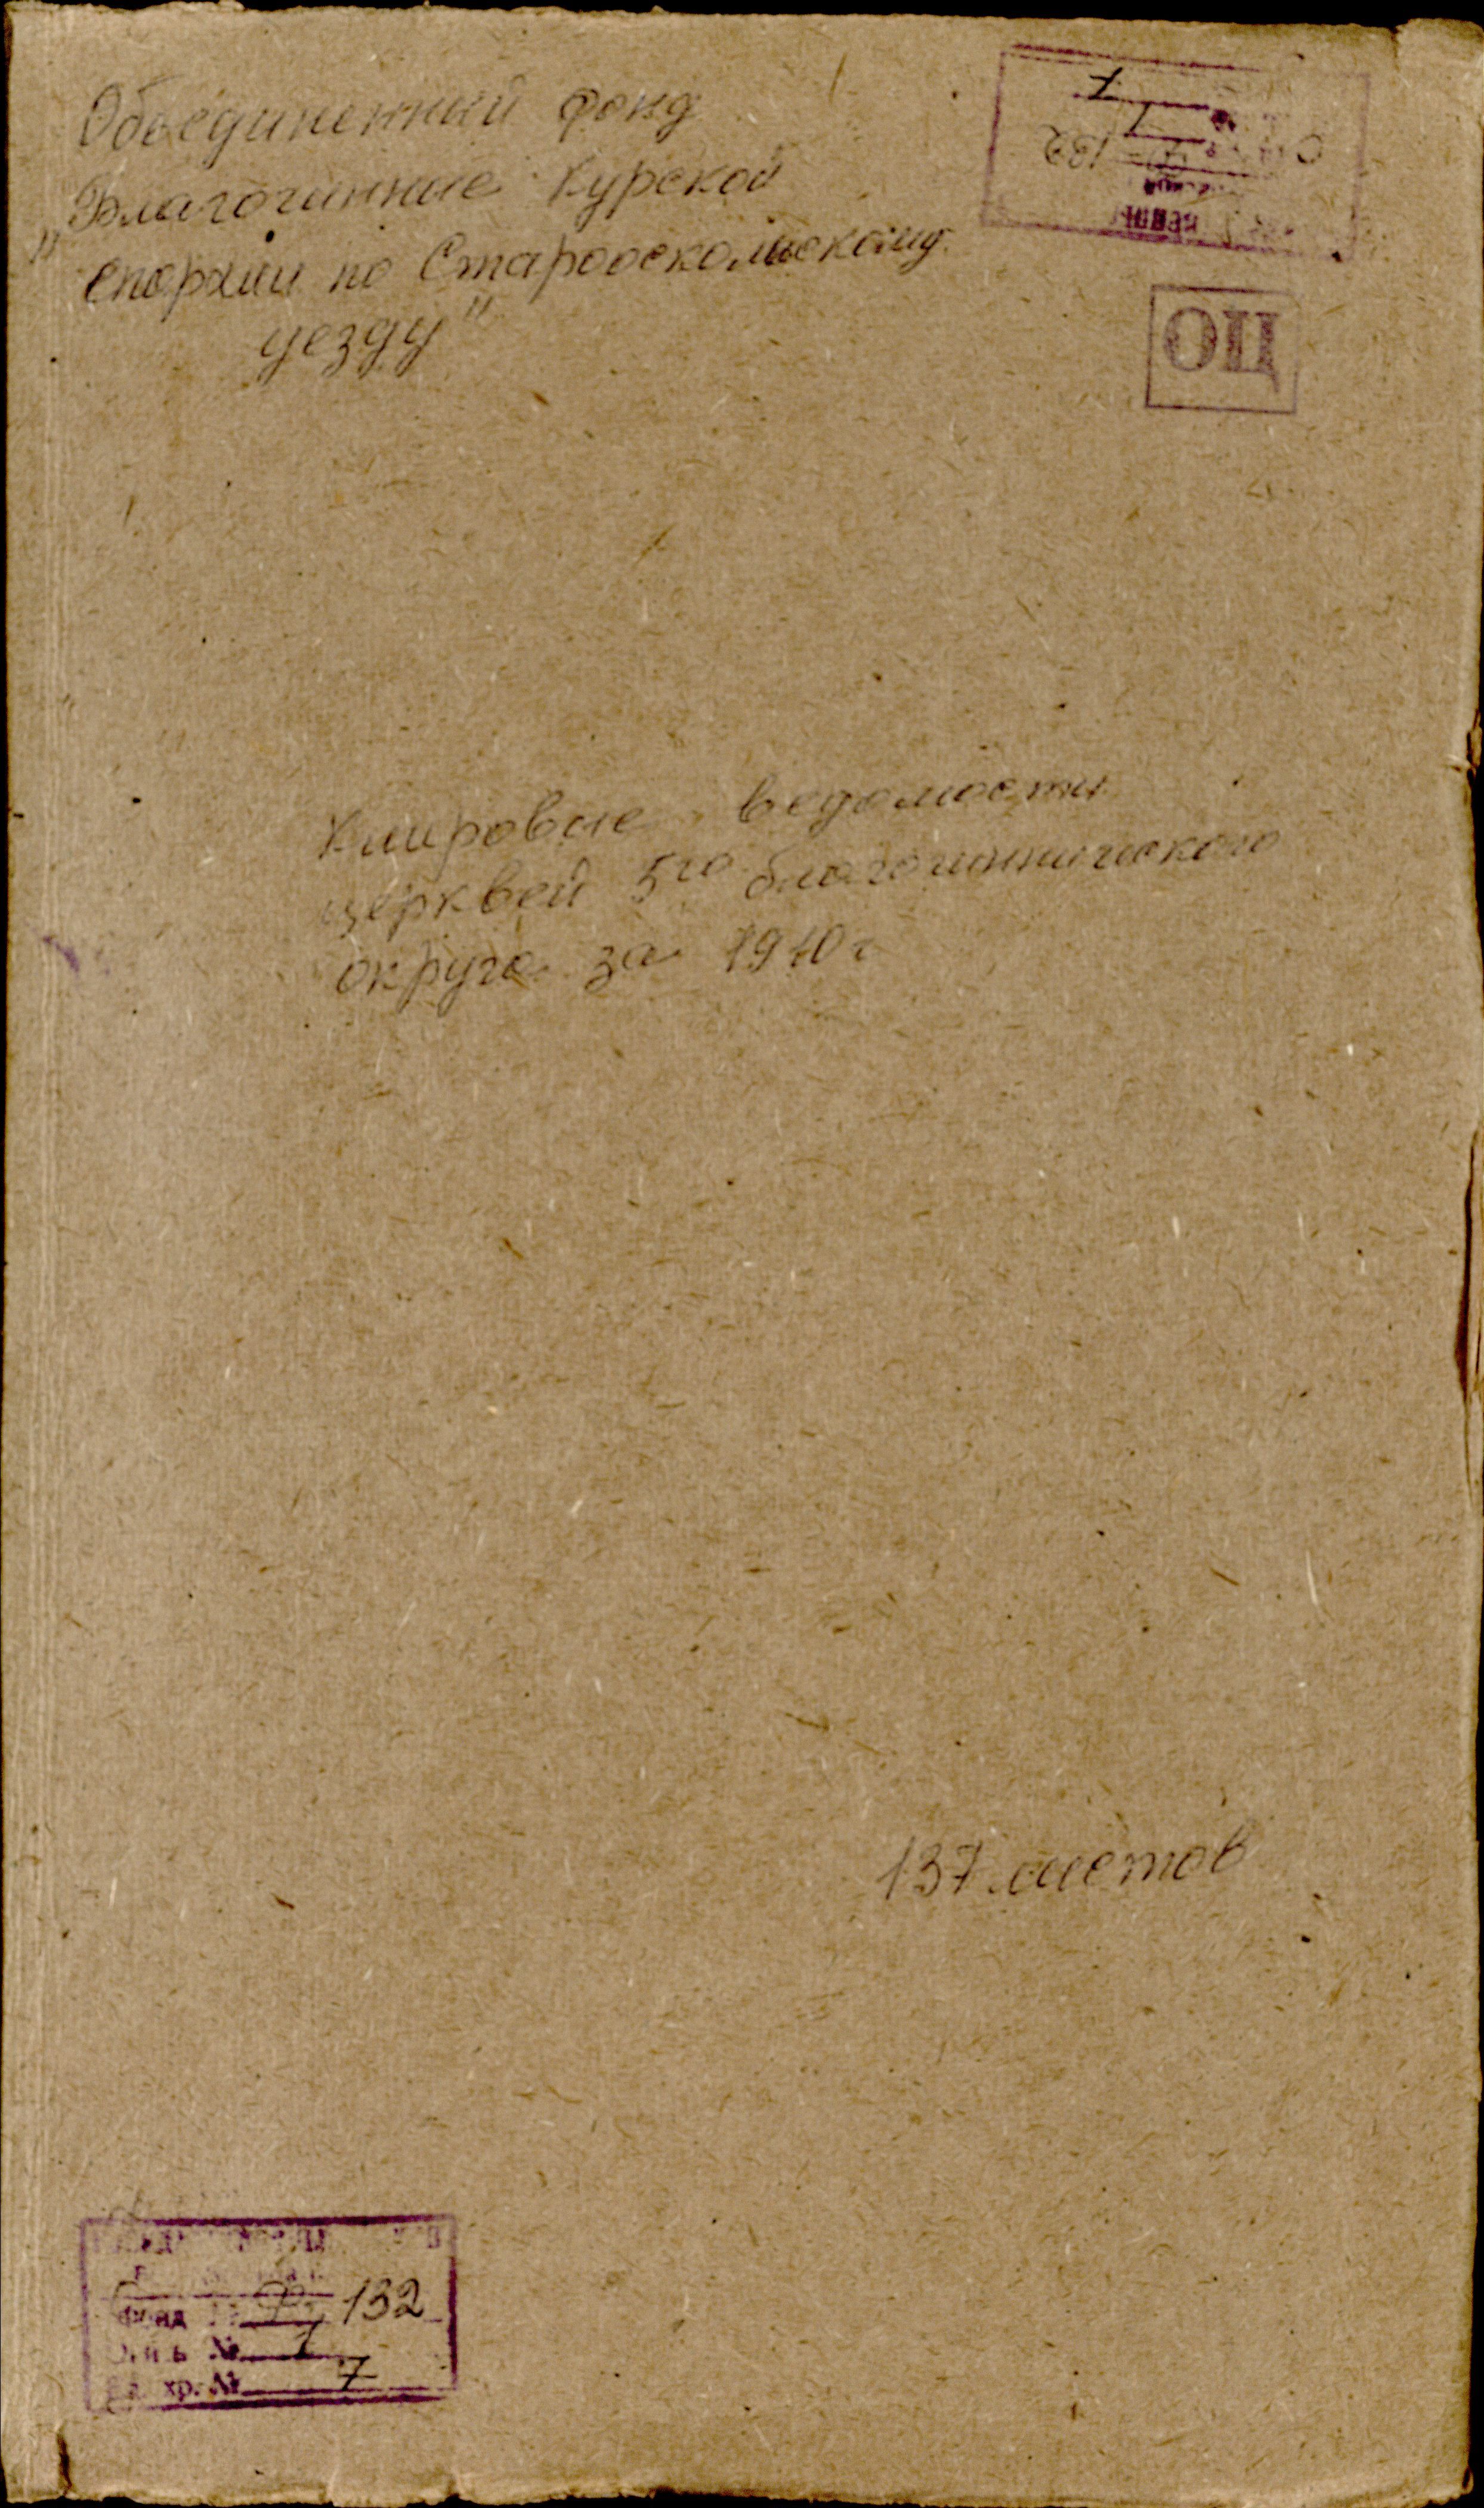 Объединенный фонд
"Благочинные Курской
епархии по Старооскольскому
уезду"
ЦО
Клировые ведомости
церквей 5го благочиннического
округа за 1910 г
137 листов
Фонд 132
№ 1
хр. № 7